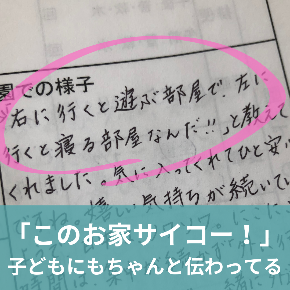 園での様子
右に行くと遊ぶ部屋で、左に
行くと寝る部屋なんだ!!」と教えて
くれました。気に入ってくれてひと安
嬉しい気持ちが続いてい
「このお家サイコー！」
子どもにもちゃんと伝わってる